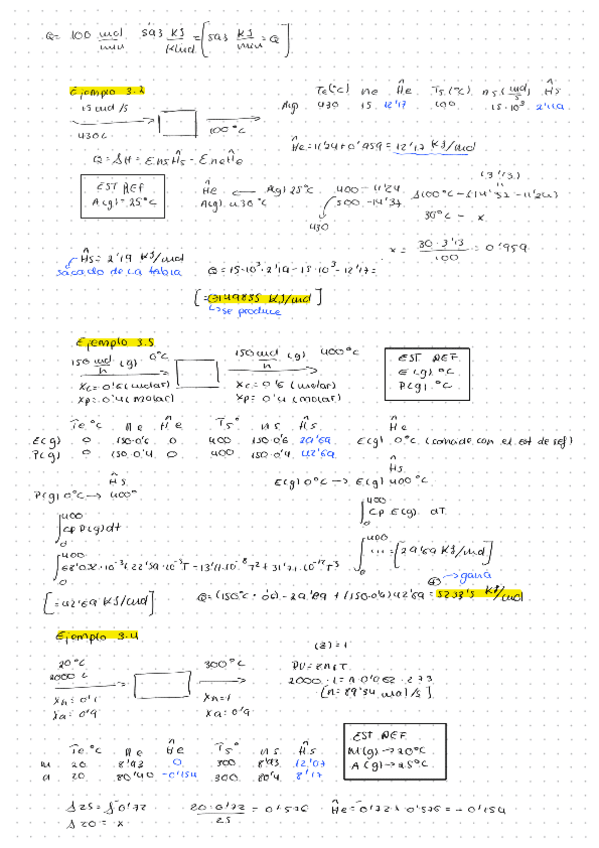 Q= 100 mol/min 5a3 KJ/Kmol = [5a3 KJ/min = Q]
Ejemplo 3.2
15 mol/s
430C 100°C
Te(°C) ne Ĥe Ts(°C) ns(mol/s) Ĥs
A(g) 430 15 12'17 100 15·10³ 2'19
Ĥe=11'24+0'959=12'17 KJ/mol
Q=ΔH=ΣnsĤs-ΣneĤe
EST REF
A(g)=25°C
Ĥe ← A(g) 25°C
A(g) 430°C
400-11'24
500-14'37
430
(3'13)
Δ100°C-(14'37-11'24)
30°C - x
x= 30·3'13/100 = 0'959
Ĥs=2'19 KJ/mol
sacado de la tabla
Q=15·10³·2'19-15·10³-12'17=
[=-149855 KJ/mol]
↳se produce
Ejemplo 3.5
150 mol/h (g) 0°C
150 mol/h (g) 400°C
xe=0'6 (molar)
xp=0'4 (molar)
xe=0'6 (molar)
xp=0'4 (molar)
EST REF
E(g) °C
P(g) °C
Te°C ne Ĥe Ts° ns Ĥs
E(g) 0 150·0'6 0 400 150·0'6 29'69
P(g) 0 150·0'4 0 400 150·0'4 42'69
Ĥe
E(g) 0°C (coincide con el est de ref)
Ĥs
P(g) 0°C → 400°
Ĥs
E(g) 0°C → E(g) 400°C
∫₀⁴⁰⁰ Cp P(g) dt
∫₀⁴⁰⁰ Cp E(g) dT
∫₀⁴⁰⁰ 68'032·10⁻³+22'59·10⁻⁵T-13'11·10⁻⁸T²+31'71·10⁻¹²T³
∫₀⁴⁰⁰ ...=[29'69 KJ/mol]
[=42'69 KJ/mol]
⊕→gana
Ejemplo 3.4
20°C
2000 L
300°C
xn=0'1
xa=0'9
xn=1
xa=0'9
(z)=1
PV=znRT
[n=89'34 mol/s]
EST REF
M(g)→20°C
A(g)→25°C
Te°C ne Ĥe Ts° ns Ĥs
M 20 8'93 0 300 8'93 12'07
A 20 80'40 -0'154 300 80'4 8'17
Δ25=Δ0'72
Δ20=x
20·0'72/25 = 0'576
Ĥe=-0'72+0'576=-0'154